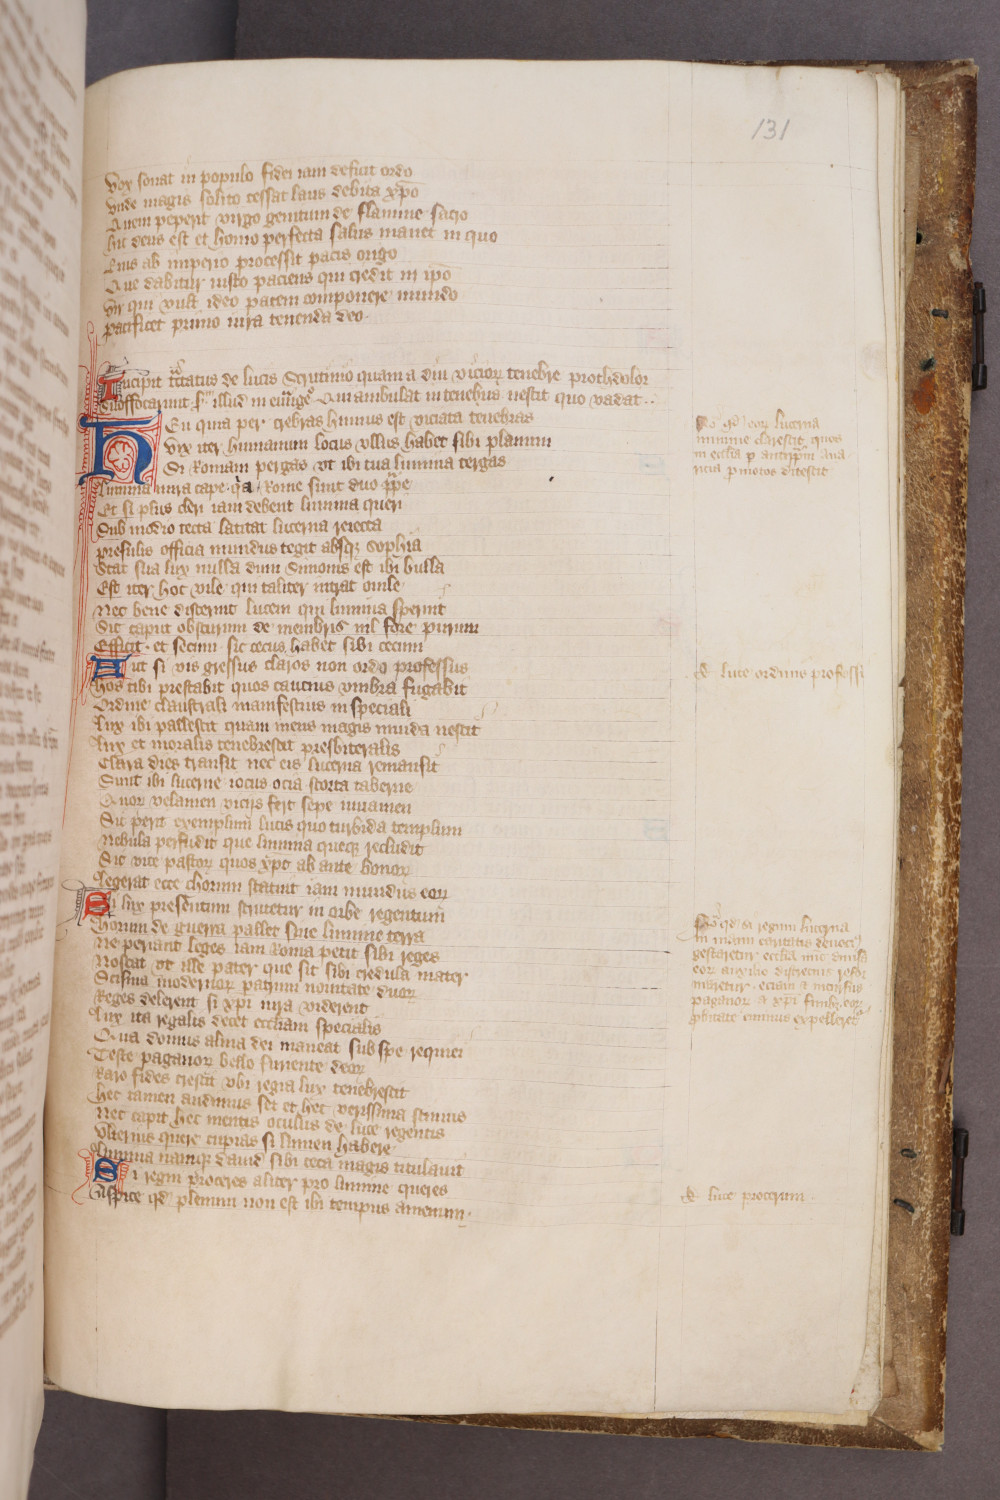 131
Vox sonat in populo fidei iam deficit ordo
Vnde magis solito cessat laus debita xpo
Quem peperit virgo genitum de flamine sacro
Hic deus est et homo perfecta salus manet in quo
Eius ab imperio processit pacis origo
Que dabitur iusto paciens qui credit in ipo
Vir qui vult ideo patem componere mundo
Pacificet primo iura tenenda deo.
Incipit tctatus de lucis scrutinio quam a diu vicior tenebre prothdolor
Suffocarunt illud in Qui ambulat in tenebris nescit quo vadat
Heu quia per crebras humus est viciata tenebras
Vix iter humanum locus vllus habet sibi planum
Si Romam pergas vt ibi tua lumina tergas
Lumina mira cape qa Rome sunt duo ppe
Et si plus cleri iam debent lumina queri
Sub modio tecta latitat lucerna reiecta
Presulis officia mundus tegit absq sophia
Stat sua lux nulla dum Simonis est ibi bulla
Est iter hoc vile qui taliter intrat ouile
Nec bene discernit lucem qui lumina spernit
Sic caput obscurum de membris nil fore purum
Efficit et secum sic cecus habet sibi cecum
Aut si vis gressus claros non ordo professus
Hos tibi prestabit quos caucius vmbra fugabit
Ordine claustrali manifestius in speciali
Lux ibi pallescit quam mens magis inuida nescit
Lux et moralis tenebrescit presbiteralis
Clara dies transit nec eis lucerna remansit
Sunt ibi lucerne iocus ocia scorta taberne
Quor velamen viciis fert sepe iuuamen
Sic perit exemplum lucis quo turbida templum
Nebula perfudit que lumina queq recludit
Sic vice pastor quos xpc ab ante bonor
Legerat ecce chorum statuit iam mundus eor
Si lux presentum scrutetur in orbe regentum
Horum de guerra pallet sine lumine terra
Ne periant leges iam Roma petit sibi reges
Noscat vt ille pater que sit sibi credula mater
Scisma modernor patrum nouitate duor
Reges delerent si xpi iura viderent
Lux ita regalis decet eccliam specialis
Qua domus alma dei maneat sub spe requiei
Teste paganor bello furiente deor
Raro fides crescit vbi regia lux tenebrescit
Hec tamen audimus set et hec verissima scimus
Nec capit hec mentis oculus de luce regentis
Vlterius quere cupias si lumen habere
Lumina namq dauid sibi ceca magis titulauit
Si regni proceres aliter pro lumine queres
Aspice qd plenum non est ibi tempus amenum
No qd eor lucerna
minime clarescit quos
in ecclia p antippm aua
ricia pmotos ditescit
de luce ordinis professi
No qd si regum lucerna
in manu caritatis deuoci
gestaretur ecclia nunc diuisa
eor auxilio discrecius refor
maretur eciam a incursus
paganor a xpi finib eor
pbitate eminus expelleret
de luce procerum